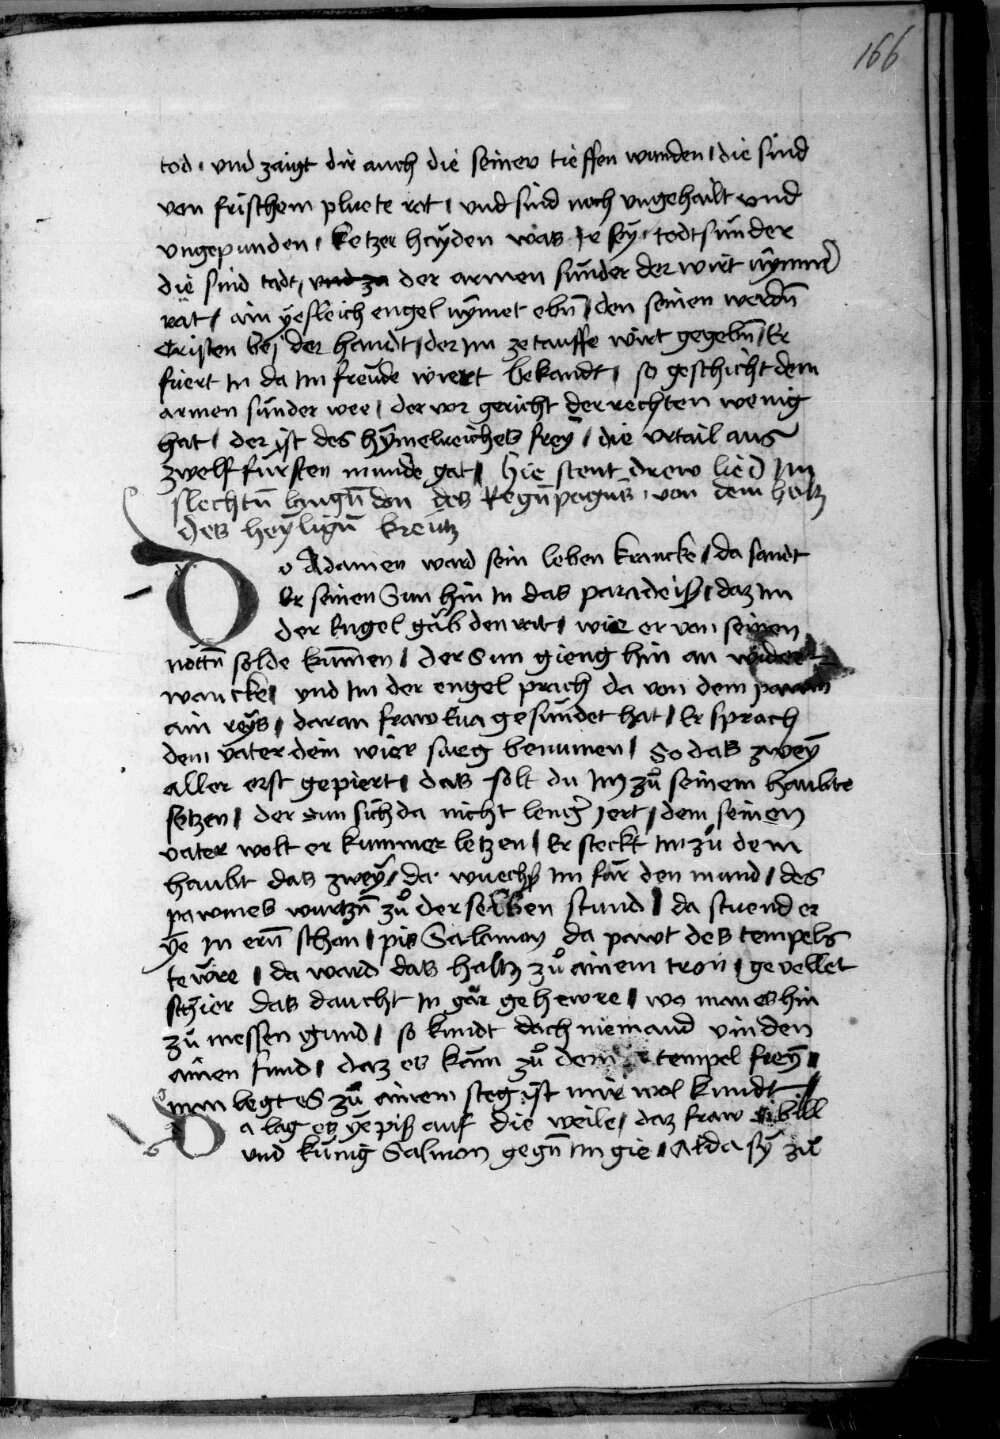 166
tod · vnd zaigt dir auch die seinen tieffen wunden / die sind
von frischem pluete rot / vnd sind noch vngehailt vnd
vngepunden / ketzer hayden was ir sey · todtsunder
die sind todt / vnd zu der armen sunder der wirt nymmer
rat / ain yesleich engel nymet ebn den seinen werdn
Cristen bej der handt / der im ze tauffe wirt gegebn / Er
fuert in da im freude wiert bekandt / so geschicht dem
armen sunder wee / der vor gericht der rechten wenig
hat / der ist des hymelreiches frey / die vrtail aus
zwelf fursten munde gat / hie stent drew lied im
slechtn langn don des Regnpogns · von dem holtz
des heylign kreutz
Do Adamen ward sein leben krancke / da sandt
er seinen Sun hin in das paradeiss / daz im
der Engel gab den rat / wie er von seinen
nottn solde kumen / der Sun gieng hin an wider
wancke / vnd im der engel prach da von dem pawm
ain reys / daran fraw Eua gesundet hat / Er sprach
dem vater dein wier sarg benumen / So das zwey
aller erst gepiert / das solt du im zu seinem haubte
setzen / der sun sich da nicht lenger jert / dem seinen
vater wolt er kummer letzen / Er steckt im zu dem
haubt das zwey / da wuechs im far den mund / des
pawmes wurtzn zu der selben stund / da stuend er
ye in ern schon / pis Salomon da pawt des tempels
tewre / da ward das holtz zu ainem tron / gevellet
schier das daucht in gar gehewre / wo man es hin
zu messen gund / so kundt doch niemand vinden
ainen fund / daz es kam zu dem tempel frey /
man legt es zu ainem steg ist mir wol kundt /
Da lag es ye pis auf die weile / daz fraw Sibill
vnd kunig Salmon gegn im gie / Alda sy zu